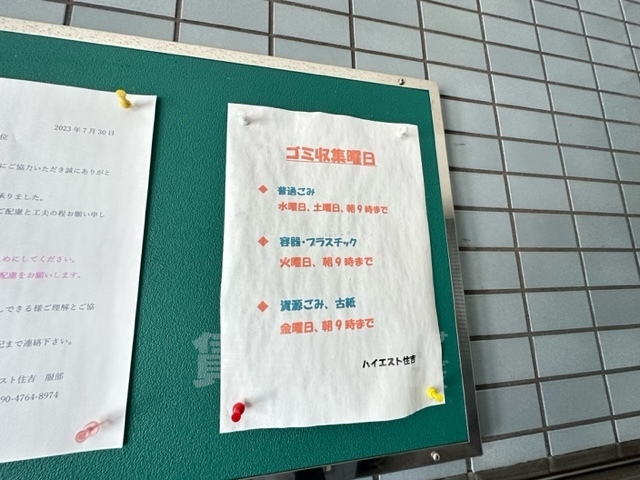 2023年7月30日
位
にご協力いただき誠にありがと
承りました。
ご配慮と工夫の程お願い申し
めにしてください。
配慮をお願いします。
しできる様ご理解とご協
記まで連絡下さい。
スト住吉 服部
90-4764-8974
ゴミ収集曜日
◆ 普通ごみ
水曜日、土曜日、朝9時まで
◆ 容器・プラスチック
火曜日、朝9時まで
◆ 資源ごみ、古紙
金曜日、朝9時まで
ハイエスト住吉